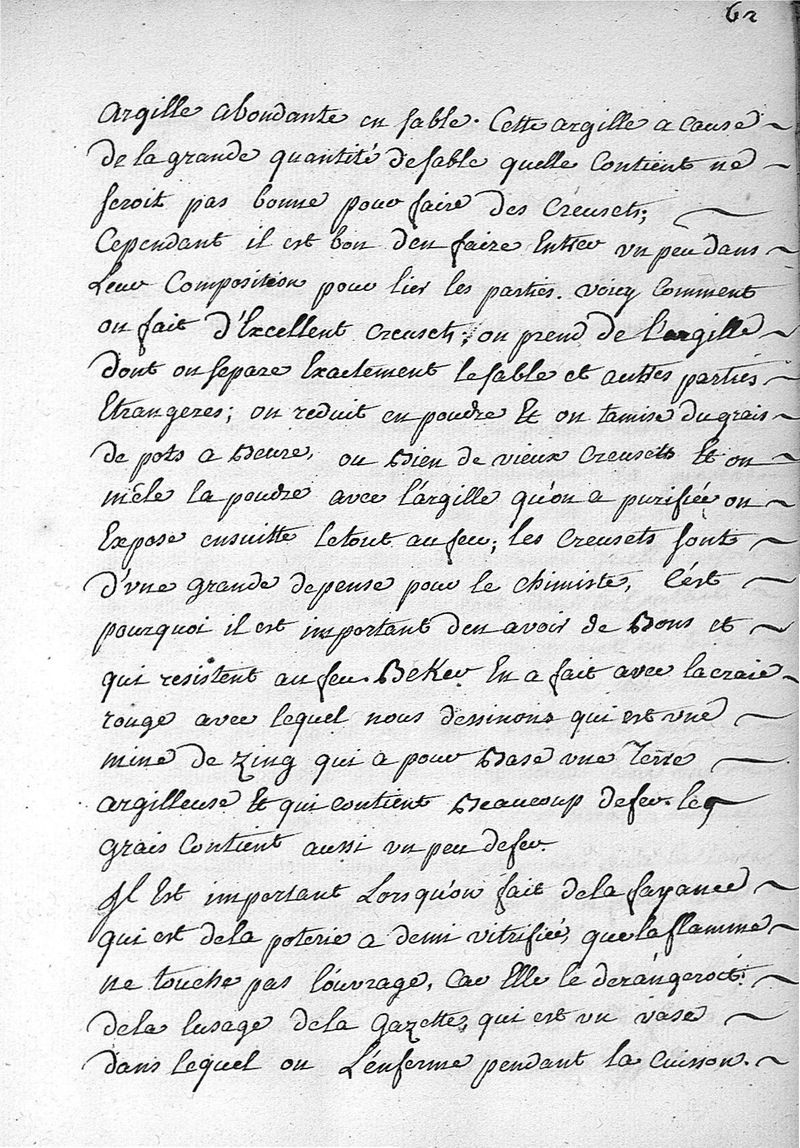 62
argille abondante en sable. Cette argille a cause
de la grande quantité de sable quelle Contient ne
seroit pas bonne pour faire des Creusets;
Cependant il est bon den faire Entrer un peu dans
Leur Composition pour lier les parties. voicy Comment
on fait d'Excellent creusets, on prend de l'argille
dont on separe Exactement le sable et autres parties
Etrangeres; on reduit en poudre Et on tamise du grais
de pots a Beure, ou Bien de vieux Creusets Et on
mêle la poudre avec l'argille qu'on a purifiée on
Expose ensuitte le tout au feu; les Creusets sont
d'une grande depense pour le chimiste, C'est
pourquoi il est important den avoir de Bons et
qui resistent au feu. Beker En a fait avec la craie
rouge avec lequel nous dessinons qui est une
mine de Zing qui a pour Base une Terre
argilleuse Et qui contient Beaucoup de fer. le
grais Contient aussi un peu de fer.
Il Est important Lorsqu'on fait de la fayance
qui est de la poterie a demi vitrifiée, que la flamme
ne touche pas l'ouvrage, Car Elle le derángeroit.
de la lusage de la Gazette, qui est un vase
dans lequel on L'enferme pendant la Cuisson.